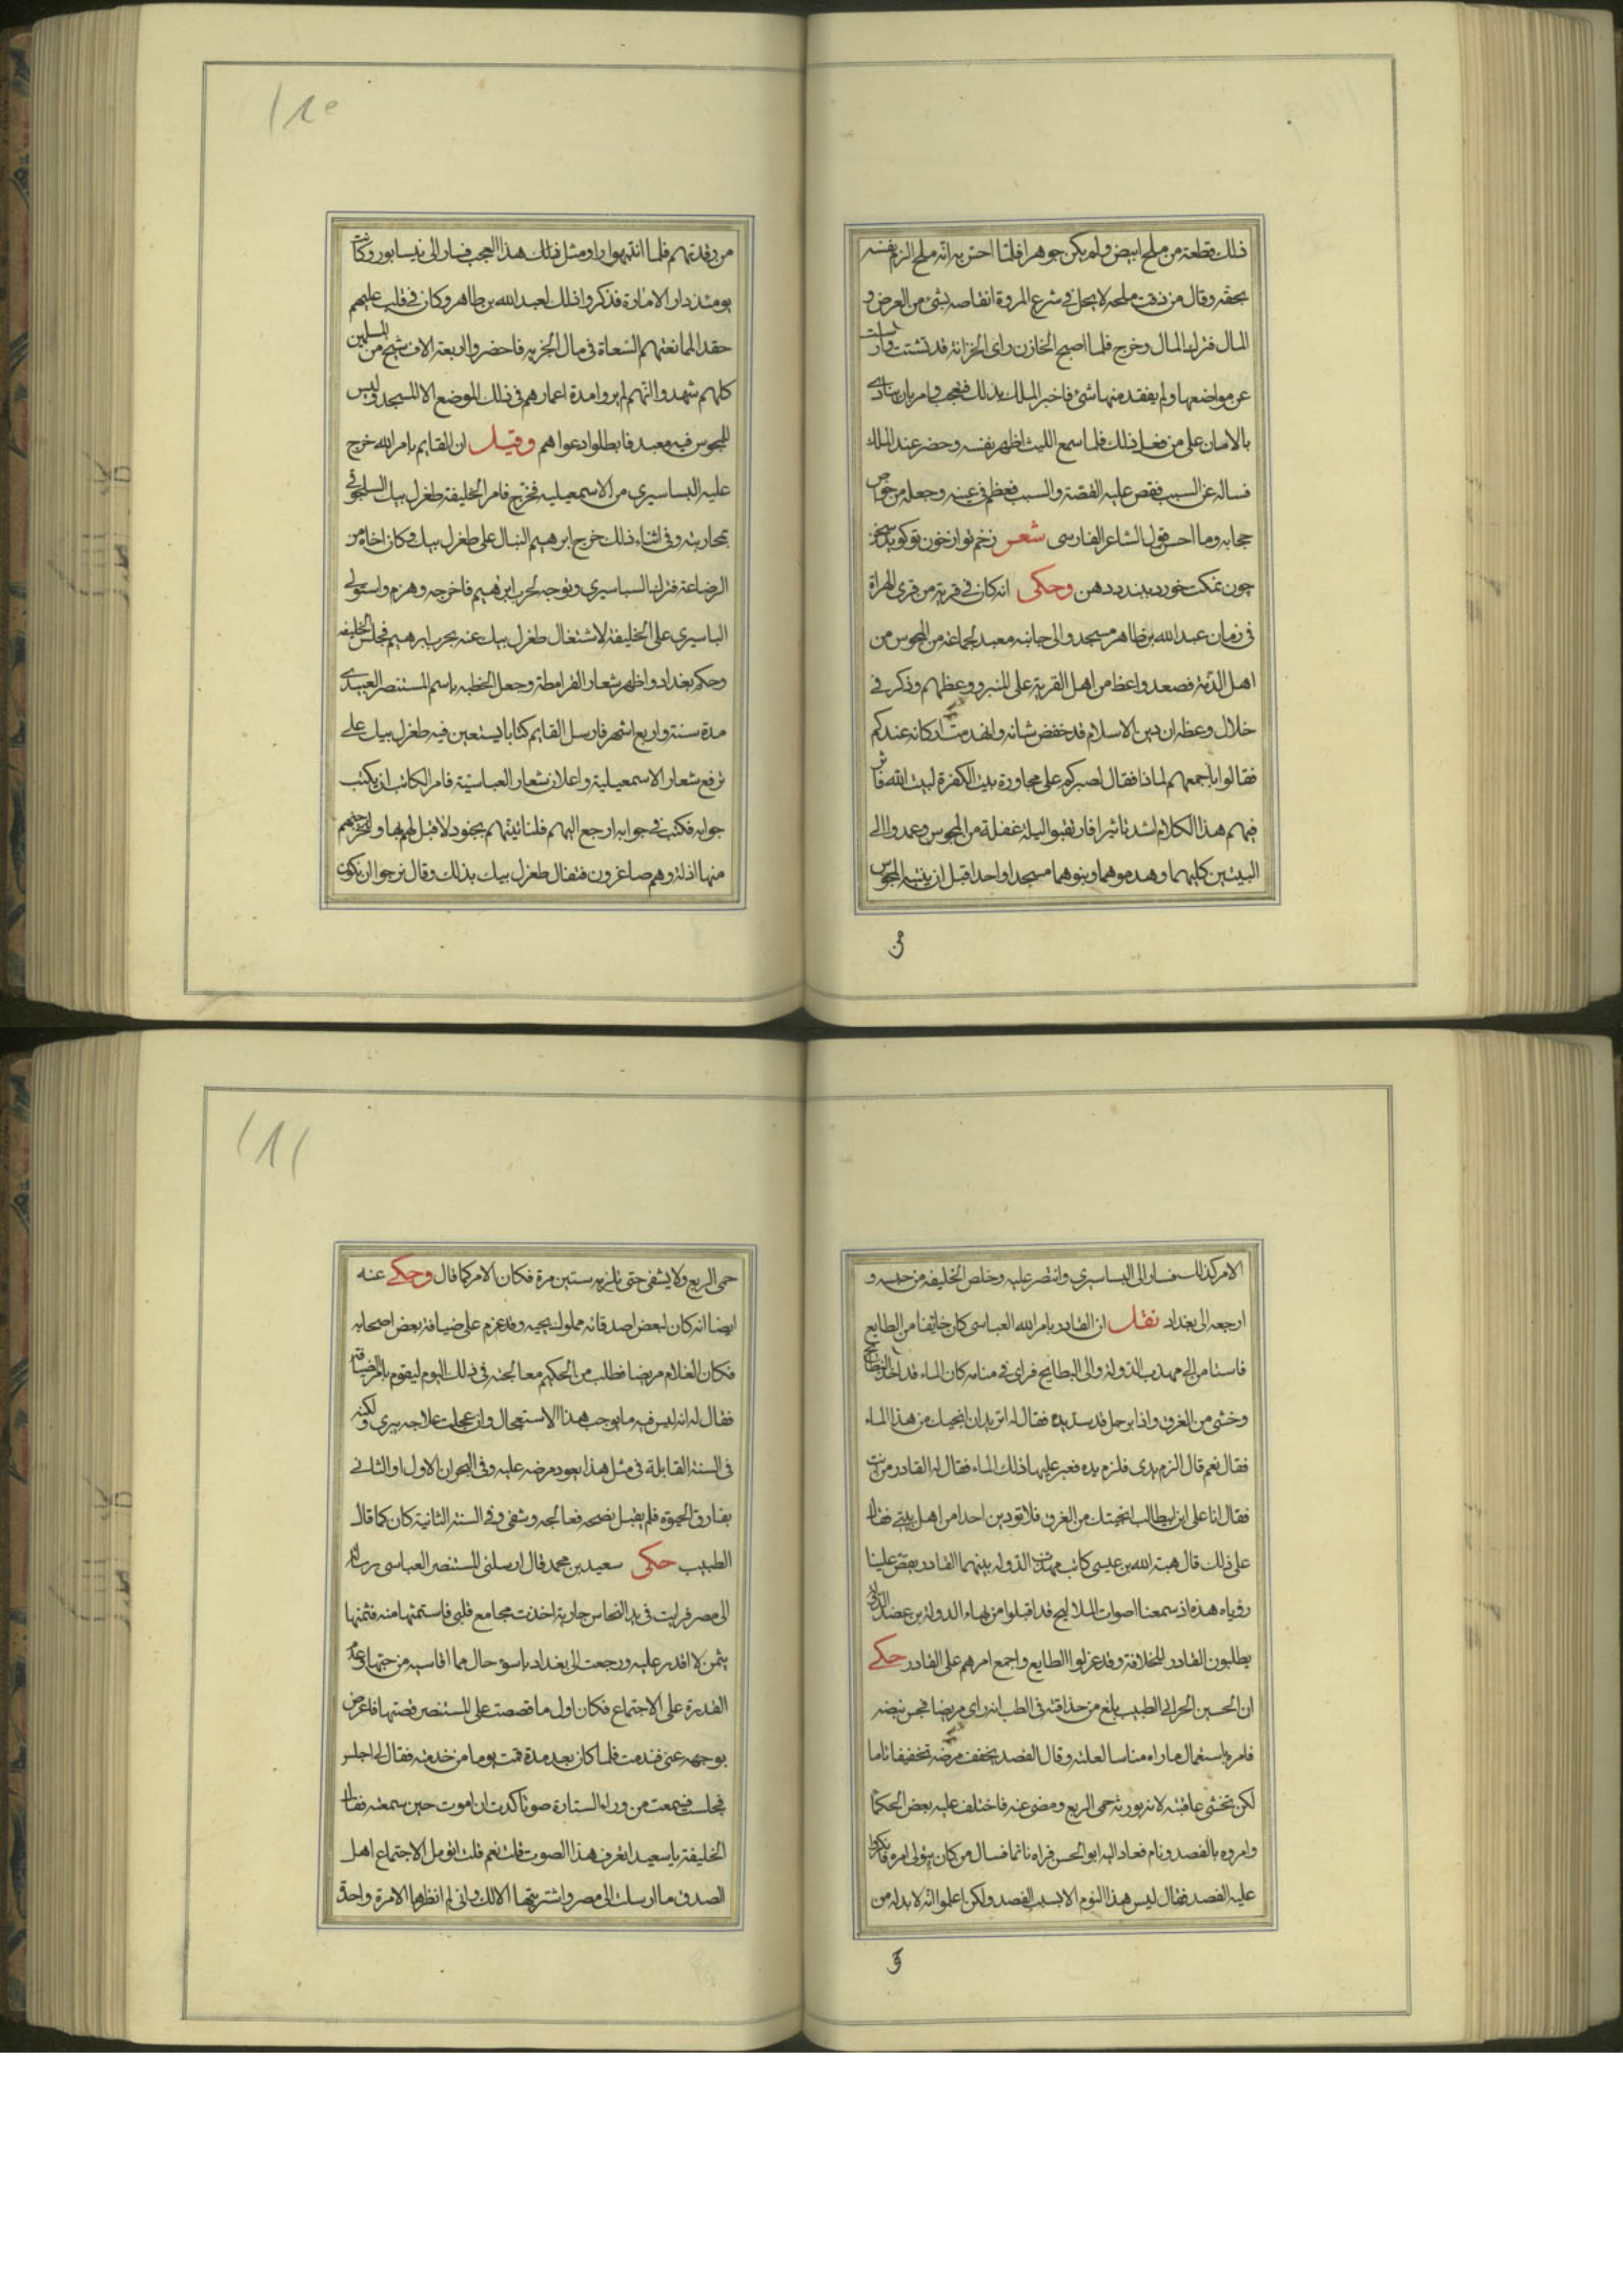 ذلك قطعة من ملح ابيض ولم يكن جوهرا فلما احس به انه ملح الزم نفسه
بحقه وقال من ذقت ملحه لا يحل في شرع المروة انتقاصه بشئ من العرض و
المال فترك المال وخرج فلما اصبح الخازن راى الخزانة قد تشتت وازيلت
عن مواضعها ولم يفقد منها شئ فاخبر الملك بذلك فتعجب وامر بان ينادى
بالامان على من فعل ذلك فلما سمع الليث اظهر نفسه وحضر عند الملك
فساله عن السبب فقص عليه القصة والسبب فعظم في عينه وجعله من خواص
حجابه وما احسن قول الشاعر الفارسى شعر زخم تو از خون تو كويد سخن
چون نمكت خورد ببندد دهن وحكى انه كان في قرية من قرى الهراة
في زمان عبد الله بن طاهر مسجد والى جانبه معبد لجماعة من المجوس من
اهل الذمة فصعد واعظ من اهل القرية على المنبر ووعظهم وذكر في
خلال وعظه ان دين الاسلام قد خفض شانه وانهدمت اركانه عندكم
فقالوا باجمعهم لماذا فقال لصبركم على مجاورة بيت الكفرة لبيت الله فاثر
فيهم هذا الكلام اشد تاثيرا فارتقبوا ليلة غفلة من المجوس وعمدوا الى
البيتين كليهما وهدموهما وبنوهما مسجدا واحدا قبل ان ينتبه المجوس
من
١١٠
من رقدتهم فلما انتبهوا راو مثل ذلك هذا العجب فسار الى نيسابور وكانت
يومئذ دار الامارة فذكروا ذلك لعبد الله بن طاهر وكان في قلب عليهم
حقد لممانعتهم السعاة في مال الجزية فاحضروا اربعة الاف شيخ من المسلمين
كلهم شهدوا انهم لم يروا مدة اعمارهم في ذلك الموضع الا المسجد وليس
للمجوس فيه معبد فابطلوا دعواهم وقيل ان القايم بامر الله خرج
عليه البساسيري من الاسمعيليه فخرج فامر الخليفة طغرل بيك السلجوقى
بمحاربته وفي اثناء ذلك خرج ابرهيم النيال على طغرل بيك وكان اخاه من
الرضاعة فترك البساسيري وتوجه لحرب ابرهيم فاخرجه وهزم واستولى
الباسيري على الخليفة لاشتغال طغرل بيك عنه بحرب ابرهيم فجلس الخليفه
وحكم بغداد واظهر شعار القرامطة وجعل الخطبه باسم المستنصر العبيدى
مدة سنة واربع اشهر فارسل القايم كتابا يستعين فيه طغرل بيك على
رفع شعار الاسمعيلية واعلان شعار العباسية فامر الكاتب ان يكتب
جوابه فكتب في جوابه ارجع اليهم فلناتينهم بجنود لا قبل لهم بها ولنخرجنهم
منها اذلة وهم صاغرون فتفال طغرل بيك بذلك وقال نرجوا ان يكون
الامر كذلك فسار الى البساسيري وانتصر عليه وخلص الخليفة من حبسه و
ارجعه الى بغداد نقل ان القادر بامر الله العباسى كان خائفا من الطايع
فاستامن الى مهذب الدولة والى البطايح فراى في منامه كان الماء قد اخذ البطايح
وخشى من الغرق واذا برجل قد مد يده فقال له اتريد ان انجيك من هذا الماء
فقال نعم قال الزم يدى فلزم يده فعبر عليها ذلك الماء فقال له القادر من انت
فقال انا على ابن ابيطالب انجيتك من الغرق فلا تؤدين احدا من اهل بيتى فقال
على ذلك قال هبة الله بن عيسى كاتب مهذب الدوله بينهما القادر يقص علينا
روياه هذه اذ سمعنا اصوات الملاليح قد اقبلوا من بهاء الدولة بن عضد الدولة
يطلبون القادر للخلافة وقد عزلوا الطايع واجمع امرهم على القادر حكى
ان الحسين الحراني الطبيب بلغ من حذاقته في الطب انه راى مريضا فجس نبضه
فامره باستعمال ما راه مناسبا لعلته وقال الفصد يخفف مرضه تخفيفا تاما
لكن تخشى عاقبته لانه يورثه حمى الربع ومضى عنه فاختلف عليه بعض الحكما
وامروه بالفصد ونام فعاد اليه ابو الحسن فراه نائما فسال من كان يتولى امره فانكروا
عليه الفصد فقال ليس هذا النوم الا بسبب الفصد ولكن اعلموا انه لا بد له من
١١١
حمى الربع ولا يشفى حتى تلزمه ستين مرة فكان الامر كما قال وحكى عنه
ايضا انه كان لبعض اصدقائه مملوك يحبه وقد عزم على ضيافة بعض اصحابه
فكان الغلام مريضا فطلب من الحكيم معالجته في ذلك اليوم ليقوم بامر الضيافة
فقال له انه ليس فيه ما يوجب هذا الاستعجال وان عجلت علاجه يبرى ولكنه
في السنة القابلة في مثل هذا يعود مرضه عليه وفي البحران الاول او الثانى
يفارق الحيوة فلم يقبل نصحه فعالجه وشفى وفي السنة الثانية كان كما قال
الطبيب حكى سعيد بن محمد قال ارسلنى المستنصر العباسى برسالة
الى مصر فرايت في يد النخاس جارية اخذت مجامع قلبى فاستمثها منه فثمنها
بثمن لا اقدر عليه ورجعت الى بغداد باسوء حال مما اقاسيه من حبها وعدم
القدرة على الاجتماع فكان اول ما قصصت على المستنصر قصتها فاعرض
بوجهه عنى فندمت فلما كان بعد مدة قمت يوما من خدمته فقال لى اجلس
فجلست فسمعت من وراء الستارة صوتا كدت ان اموت حين سمعته فقال
الخليفة يا سعيد اتعرف هذا الصوت قلت نعم قلت انومل الاجتماع اهل
الصدق ما ارسلت الى مصر واشتريتها الا لك وانى لم انظرها الا مرة واحدة